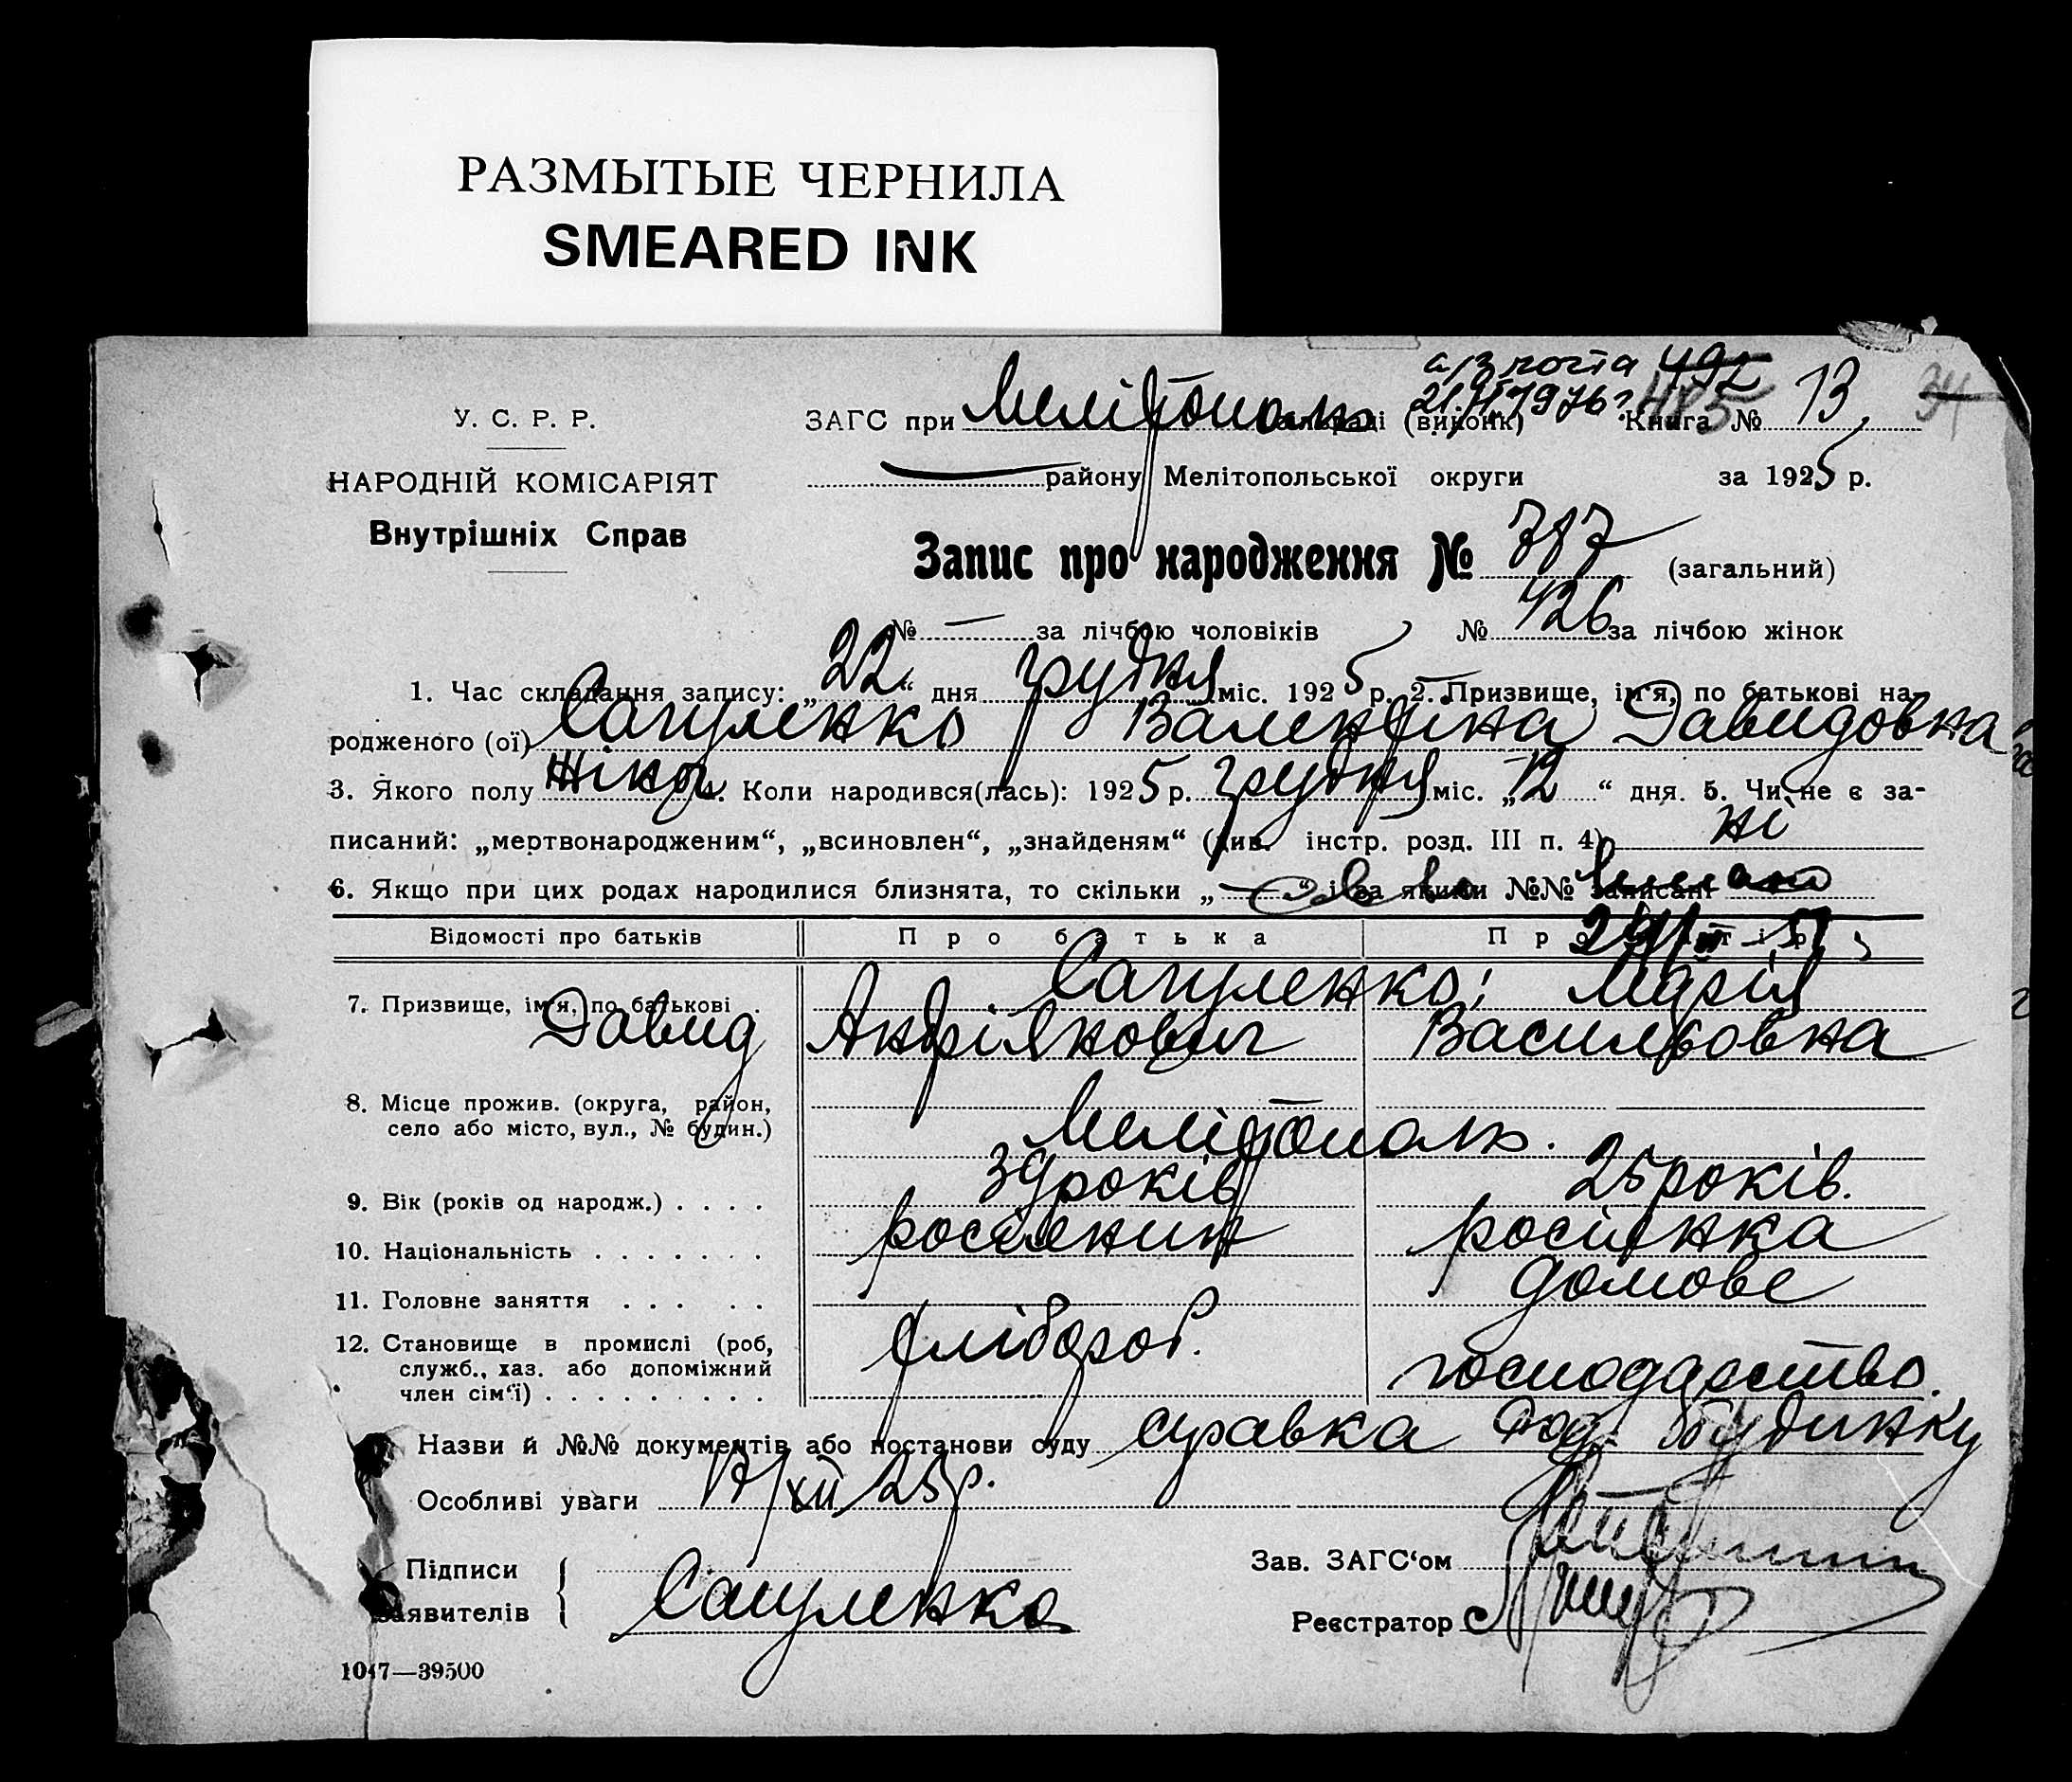 РАЗМЫТЫЕ ЧЕРНИЛА
SMEARED INK
а/з 492
У. С. Р. Р. ЗАГС при Мелітополь (виконк) 1976 г Книга № 13 34
НАРОДНІЙ КОМІСАРІЯТ району Мелітопольської округи за 1925 р.
Внутрішніх Справ
Запис про народження № 787 (загальний)
№ — за лічбою чоловіків № 426 за лічбою жінок
1. Час складання запису: „22“ дня грудня міс. 1925 р. 2. Призвище, ім‘я, по батькові на-
родженого (ої) Сагуленко Валентина Давидовна
3. Якого полу жіноч. Коли народився(лась): 1925 р. грудня міс. „12“ дня. 5. Чи не є за-
писаний: „мертвонародженим“, „всиновлен“, „знайденям“ (див. інстр. розд. III п. 4) ні
6. Якщо при цих родах народилися близнята, то скільки „ “ і за якими №№ записані
Відомості про батьків Про батька Про матір
7. Призвище, ім‘я, по батькові Сагуленко; Марія
Давид Андріянович Васильовна
8. Місце прожив. (округа, район,
село або місто, вул., № будин.) Мелітополь.
9. Вік (років од народж.) . . . . 39 років 25 років.
10. Національність . . . . . . . росіянин росіянка
11. Головне заняття . . . . . домове
12. Становище в промислі (роб, хлібороб.
служб., хаз. або допоміжний
член сім‘ї) . . . . . . . . . господарство.
Назви й №№ документів або постанови суду справка род. будинку
Особливі уваги 17/XII 25 р.
Підписи Зав. ЗАГС‘ом
заявителів Сагуленко Реєстратор
1047—39500